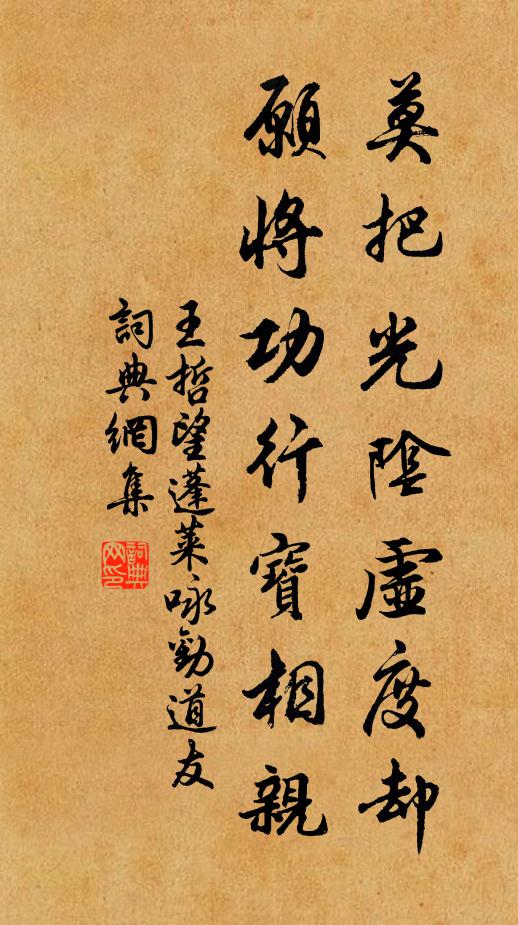 莫把光陰虛度却
願將功行寶相親
王哲望蓬萊詠勸道友
詞典網集
詞典網印